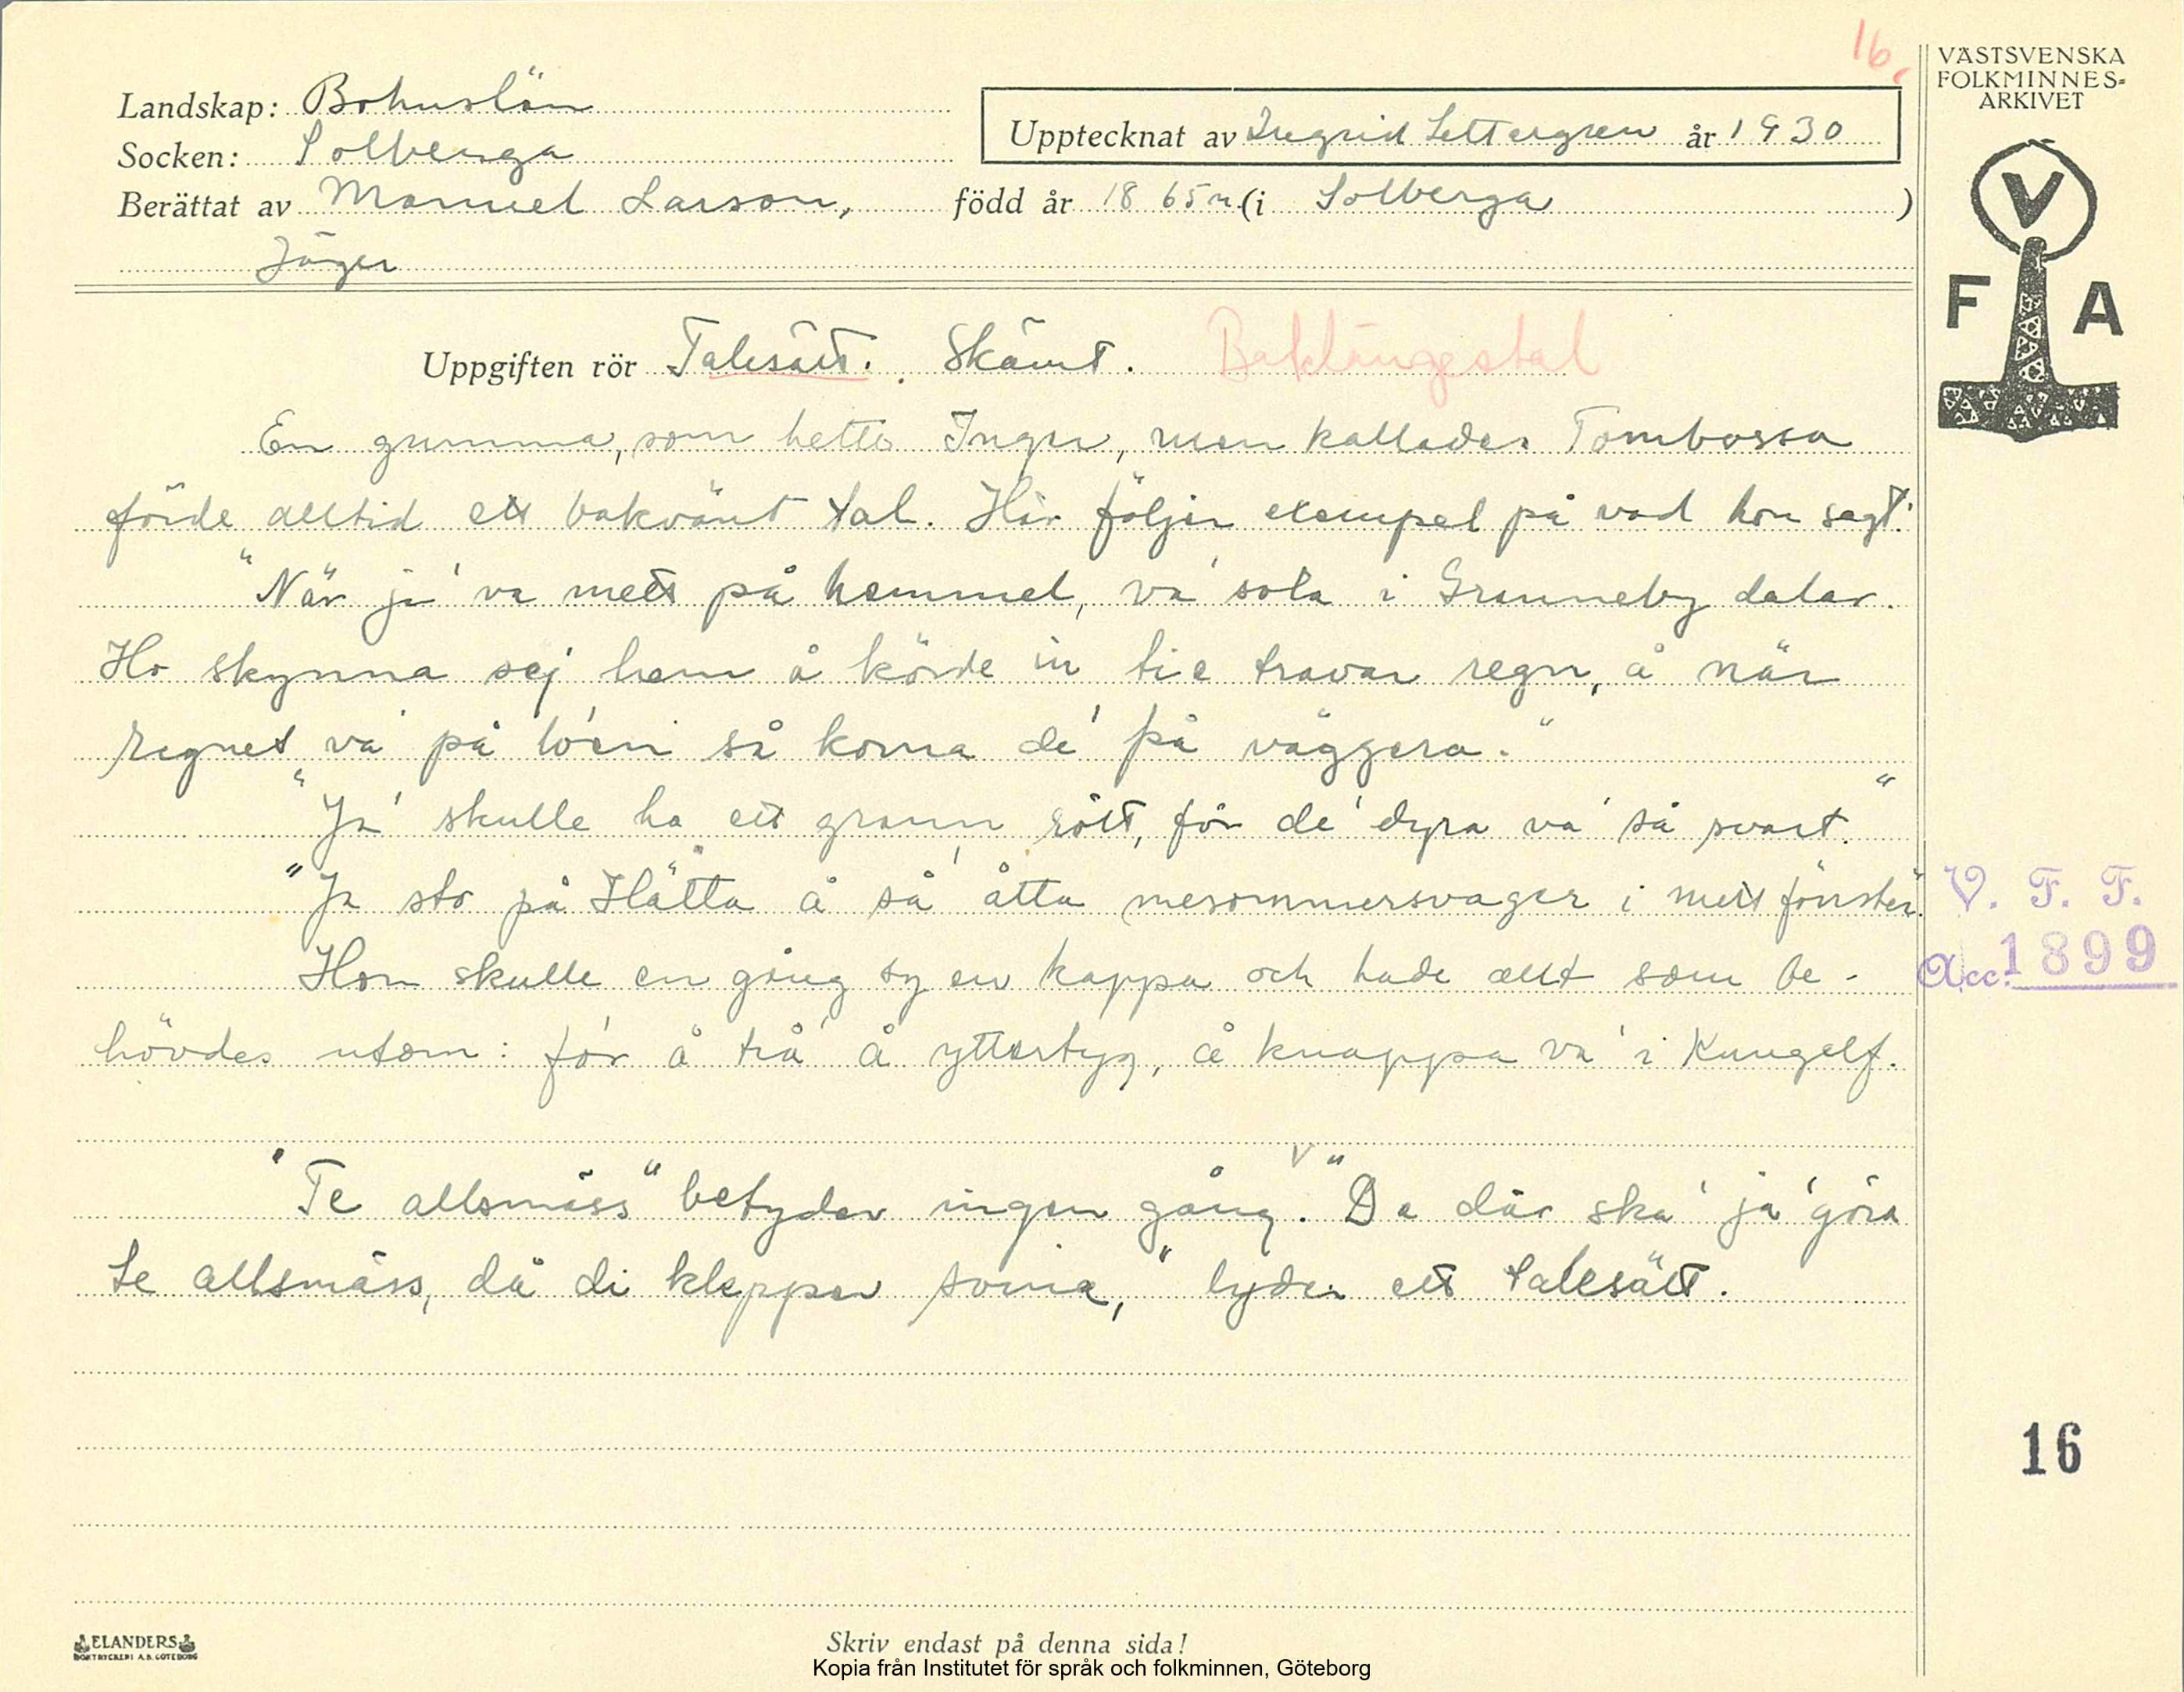 16.
VÄSTSVENSKA
FOLKMINNES-
ARKIVET
Landskap: Bohuslän
Upptecknat av Ingrid Settergren år 1930
Socken: Solberga
Berättat av Manuel Larson, född år 1865 (i Solberga)
Jäger
V
F A
Uppgiften rör Talesätt. Skämt. Baklängestal
En gumma, som hette Inger, men kallades Tombossa
förde alltid ett bakvänt tal. Här följer exempel på vad hon sagt:
"När ja' va mett på hemmel, va' sola i Granneby dalar.
Ho skynna sej hem å körde in tie travar regn, å när
regnet va' på lo'en så koma de' på väggera."
"Ja' skulle ha ett grann rött, för de' dyra va' så svart."
"Ja sto på Hätta å så' åtta mesommersvager i mett fönster.
Hon skulle en gång sy en kappa och hade allt som be-
hövdes utom: fo'r å trå' å yttertyg, å knappa va' i Kungelf.
"Te allsmäss" betyder ingen gång. "De där ska' ja' göra
te allsmäss, då di klepper soina," lyder ett talesätt.
V. F. F.
Acc. 1899
16
ELANDERS
BOKTRYCKERI A.B. GÖTEBORG
Skriv endast på denna sida!
Kopia från Institutet för språk och folkminnen, Göteborg